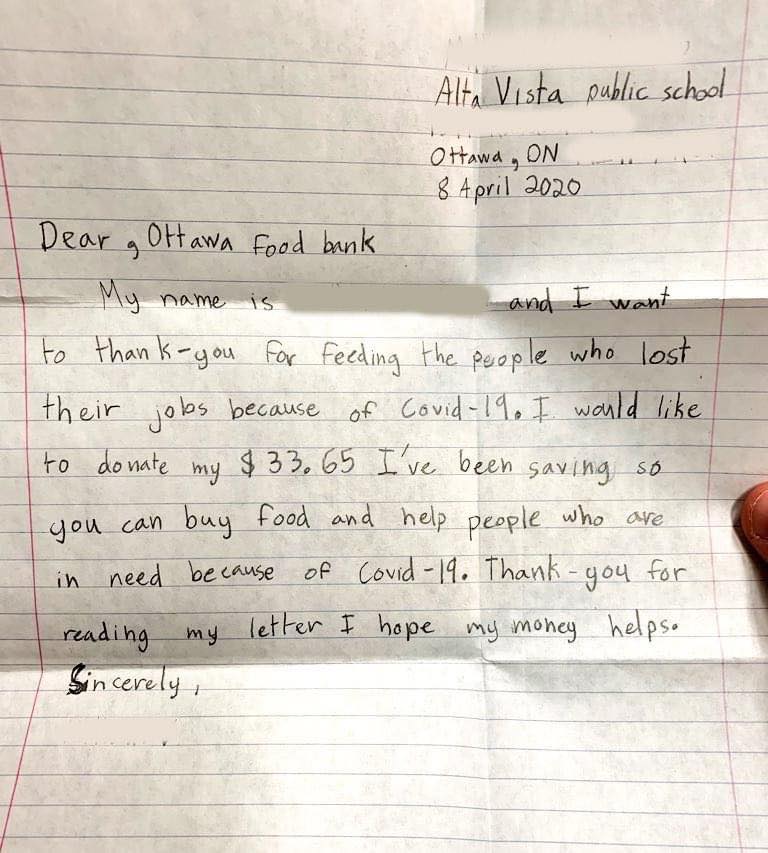 Alta Vista public school
Ottawa, ON
8 April 2020
Dear, Ottawa Food bank
My name is and I want
to thank-you for feeding the people who lost
their jobs because of Covid-19. I would like
to donate my $33.65 I've been saving so
you can buy food and help people who are
in need because of Covid-19. Thank-you for
reading my letter I hope my money helps.
Sincerely,